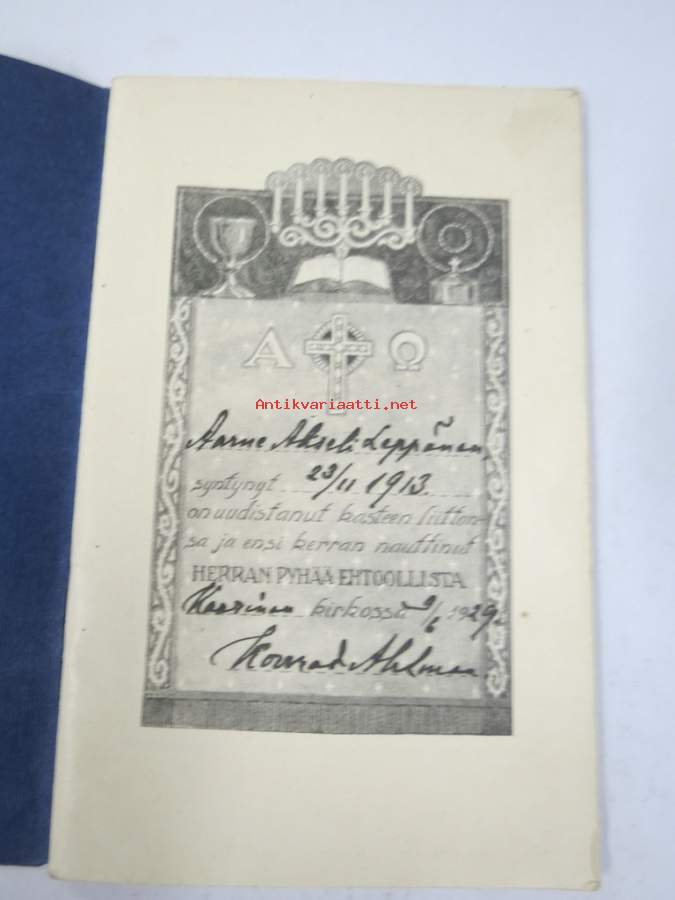 Α Ω
Antikvariaatti.net
Aarne Akseli Leppänen
syntynyt 23/11 1913.
on uudistanut kasteen liitton-
sa ja ensi kerran nauttinut
HERRAN PYHÄÄ EHTOOLLISTA
Kaarinan kirkossa 9/6 1929.
Konrad Ahlman